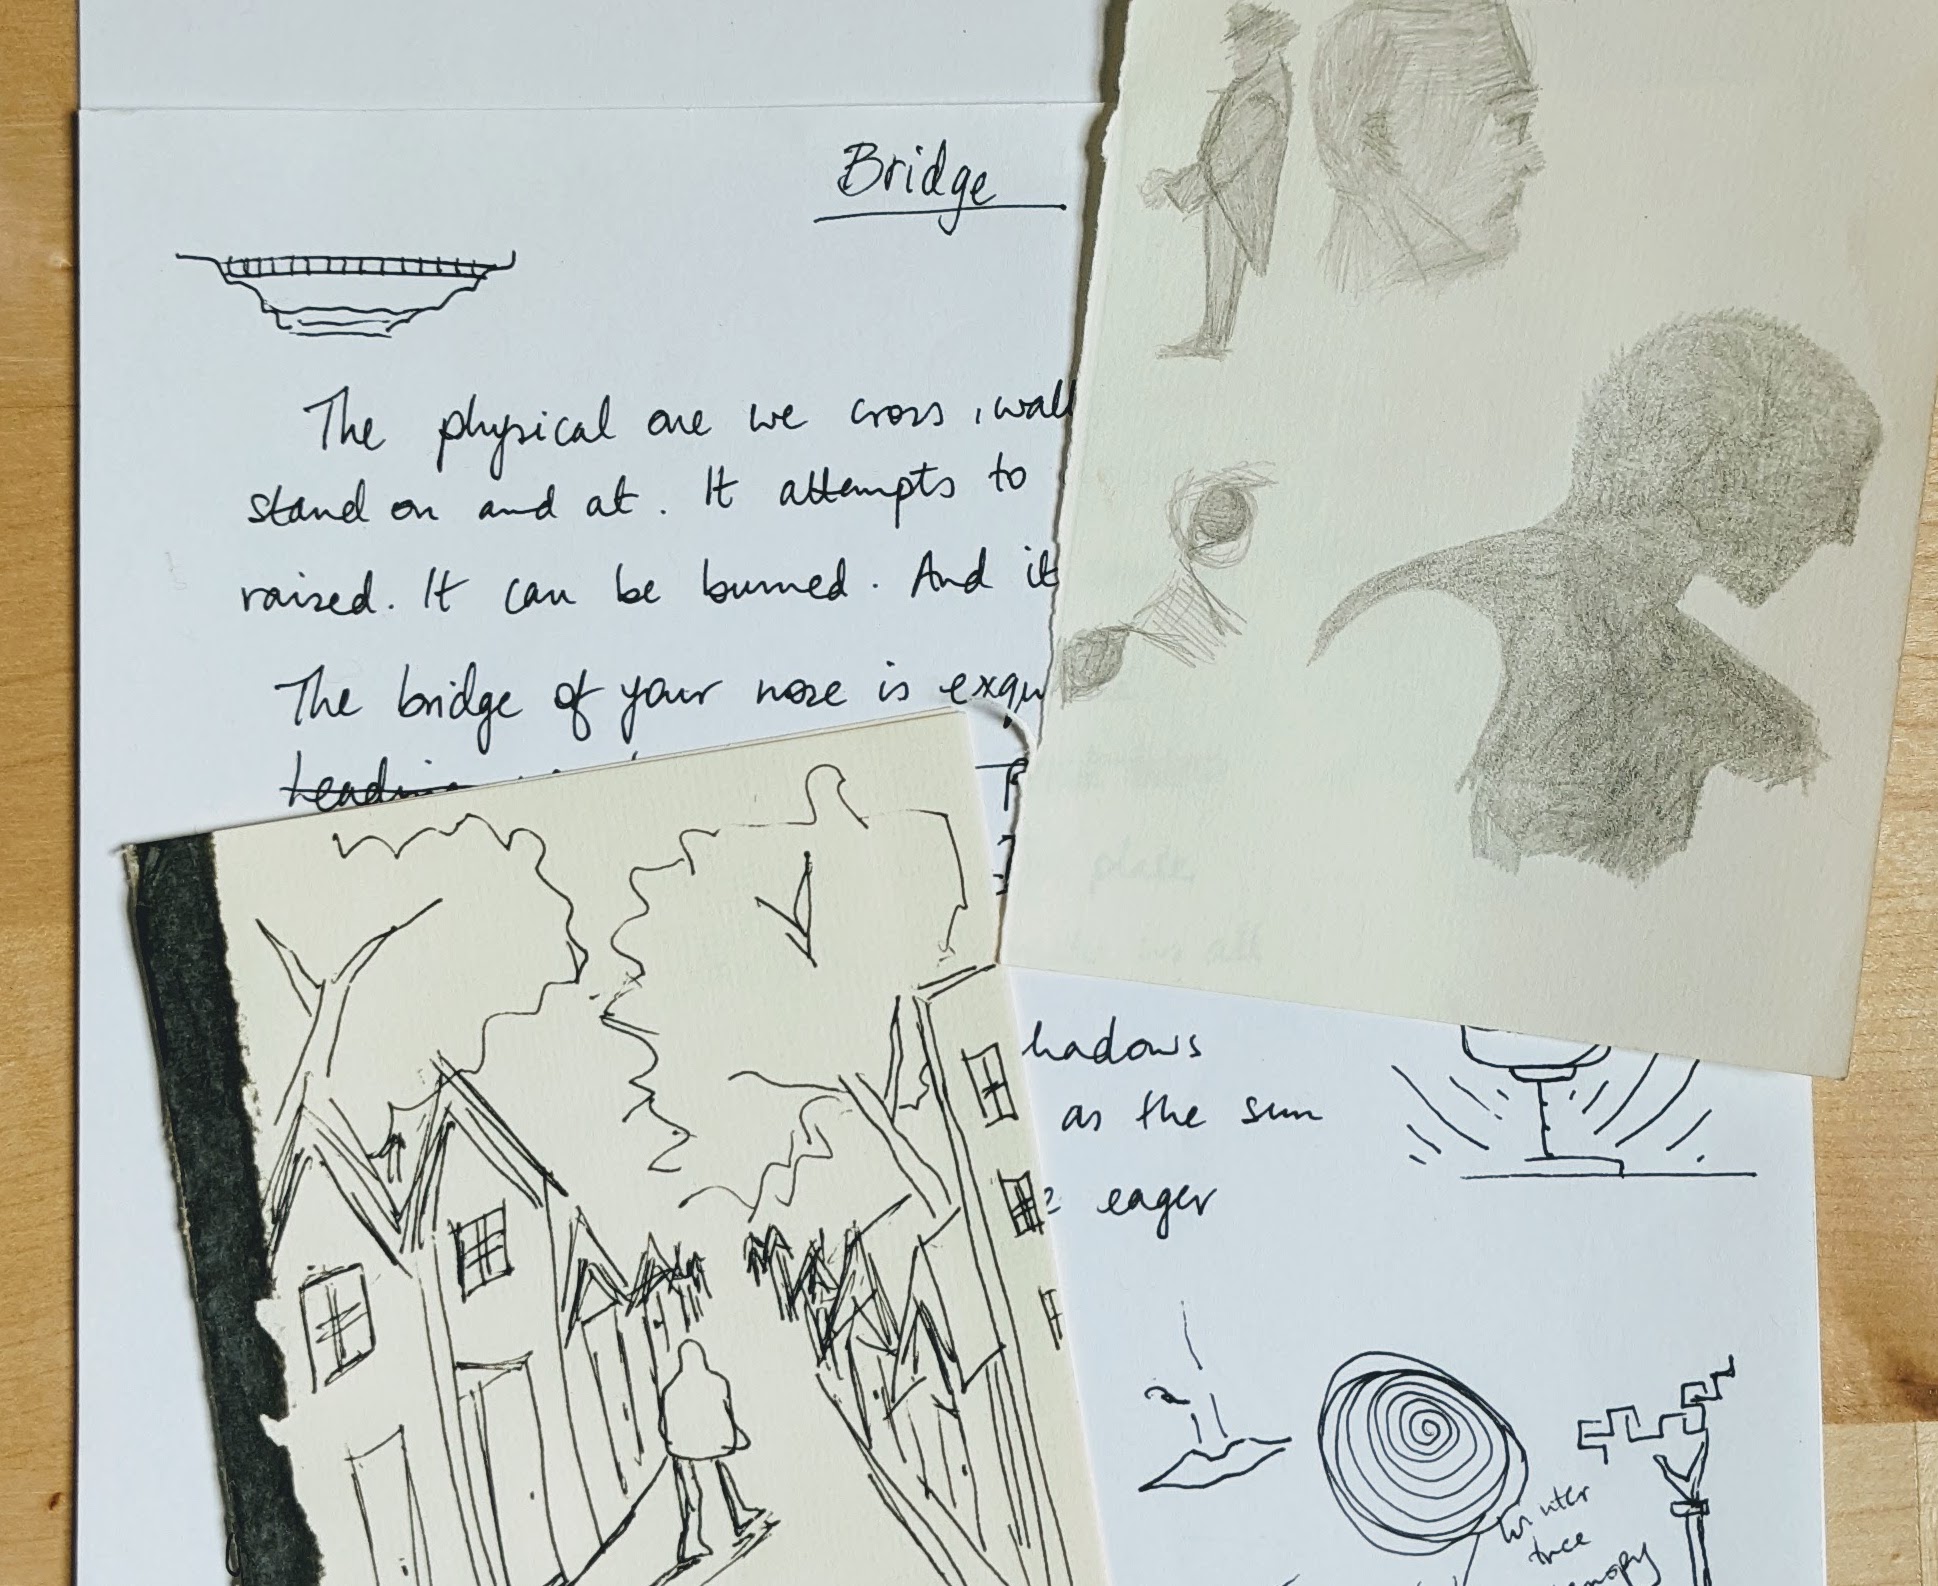 Bridge
The physical one we cross, wall
stand on and at. It attempts to
raised. It can be burned. And it
The bridge of your nose is exqu
hadows
as the sun
eager
plate
all
winter
tree